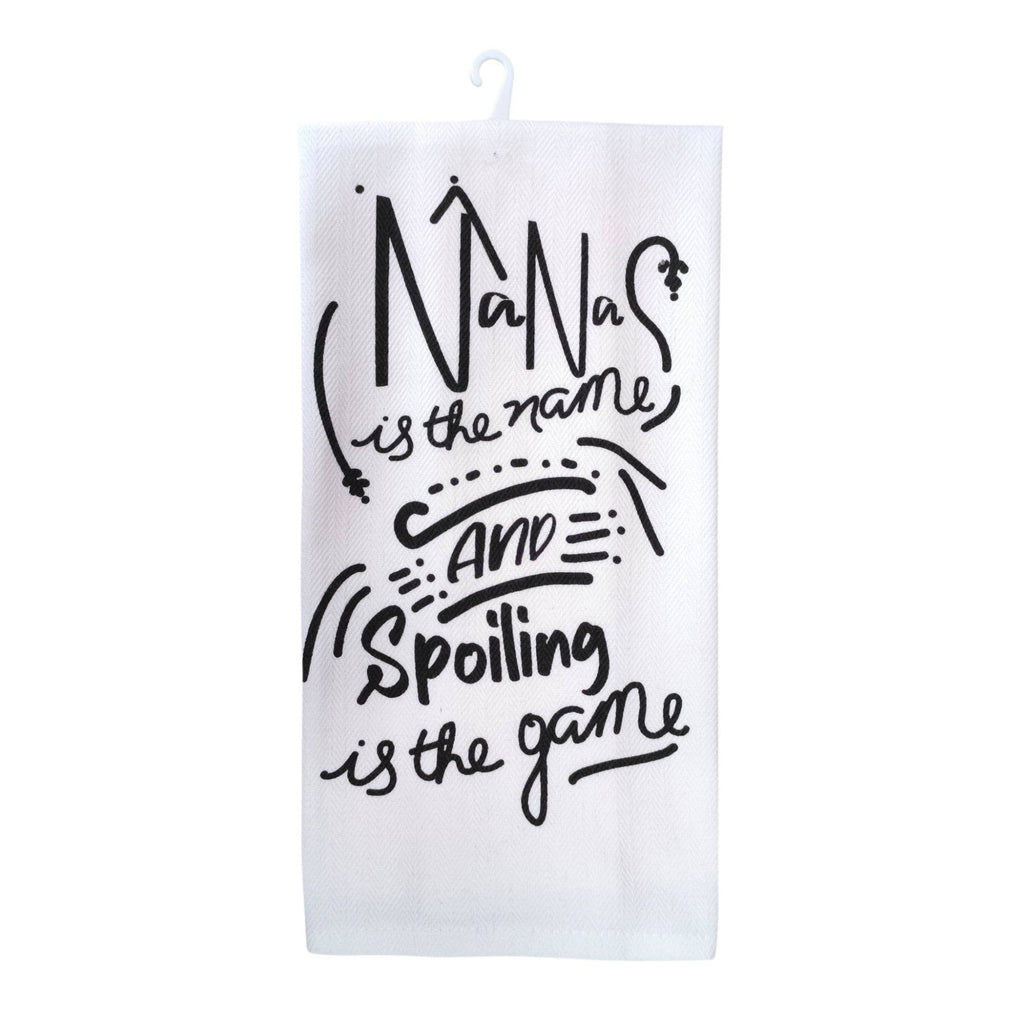 NaNas
is the name
AND
Spoiling
is the game